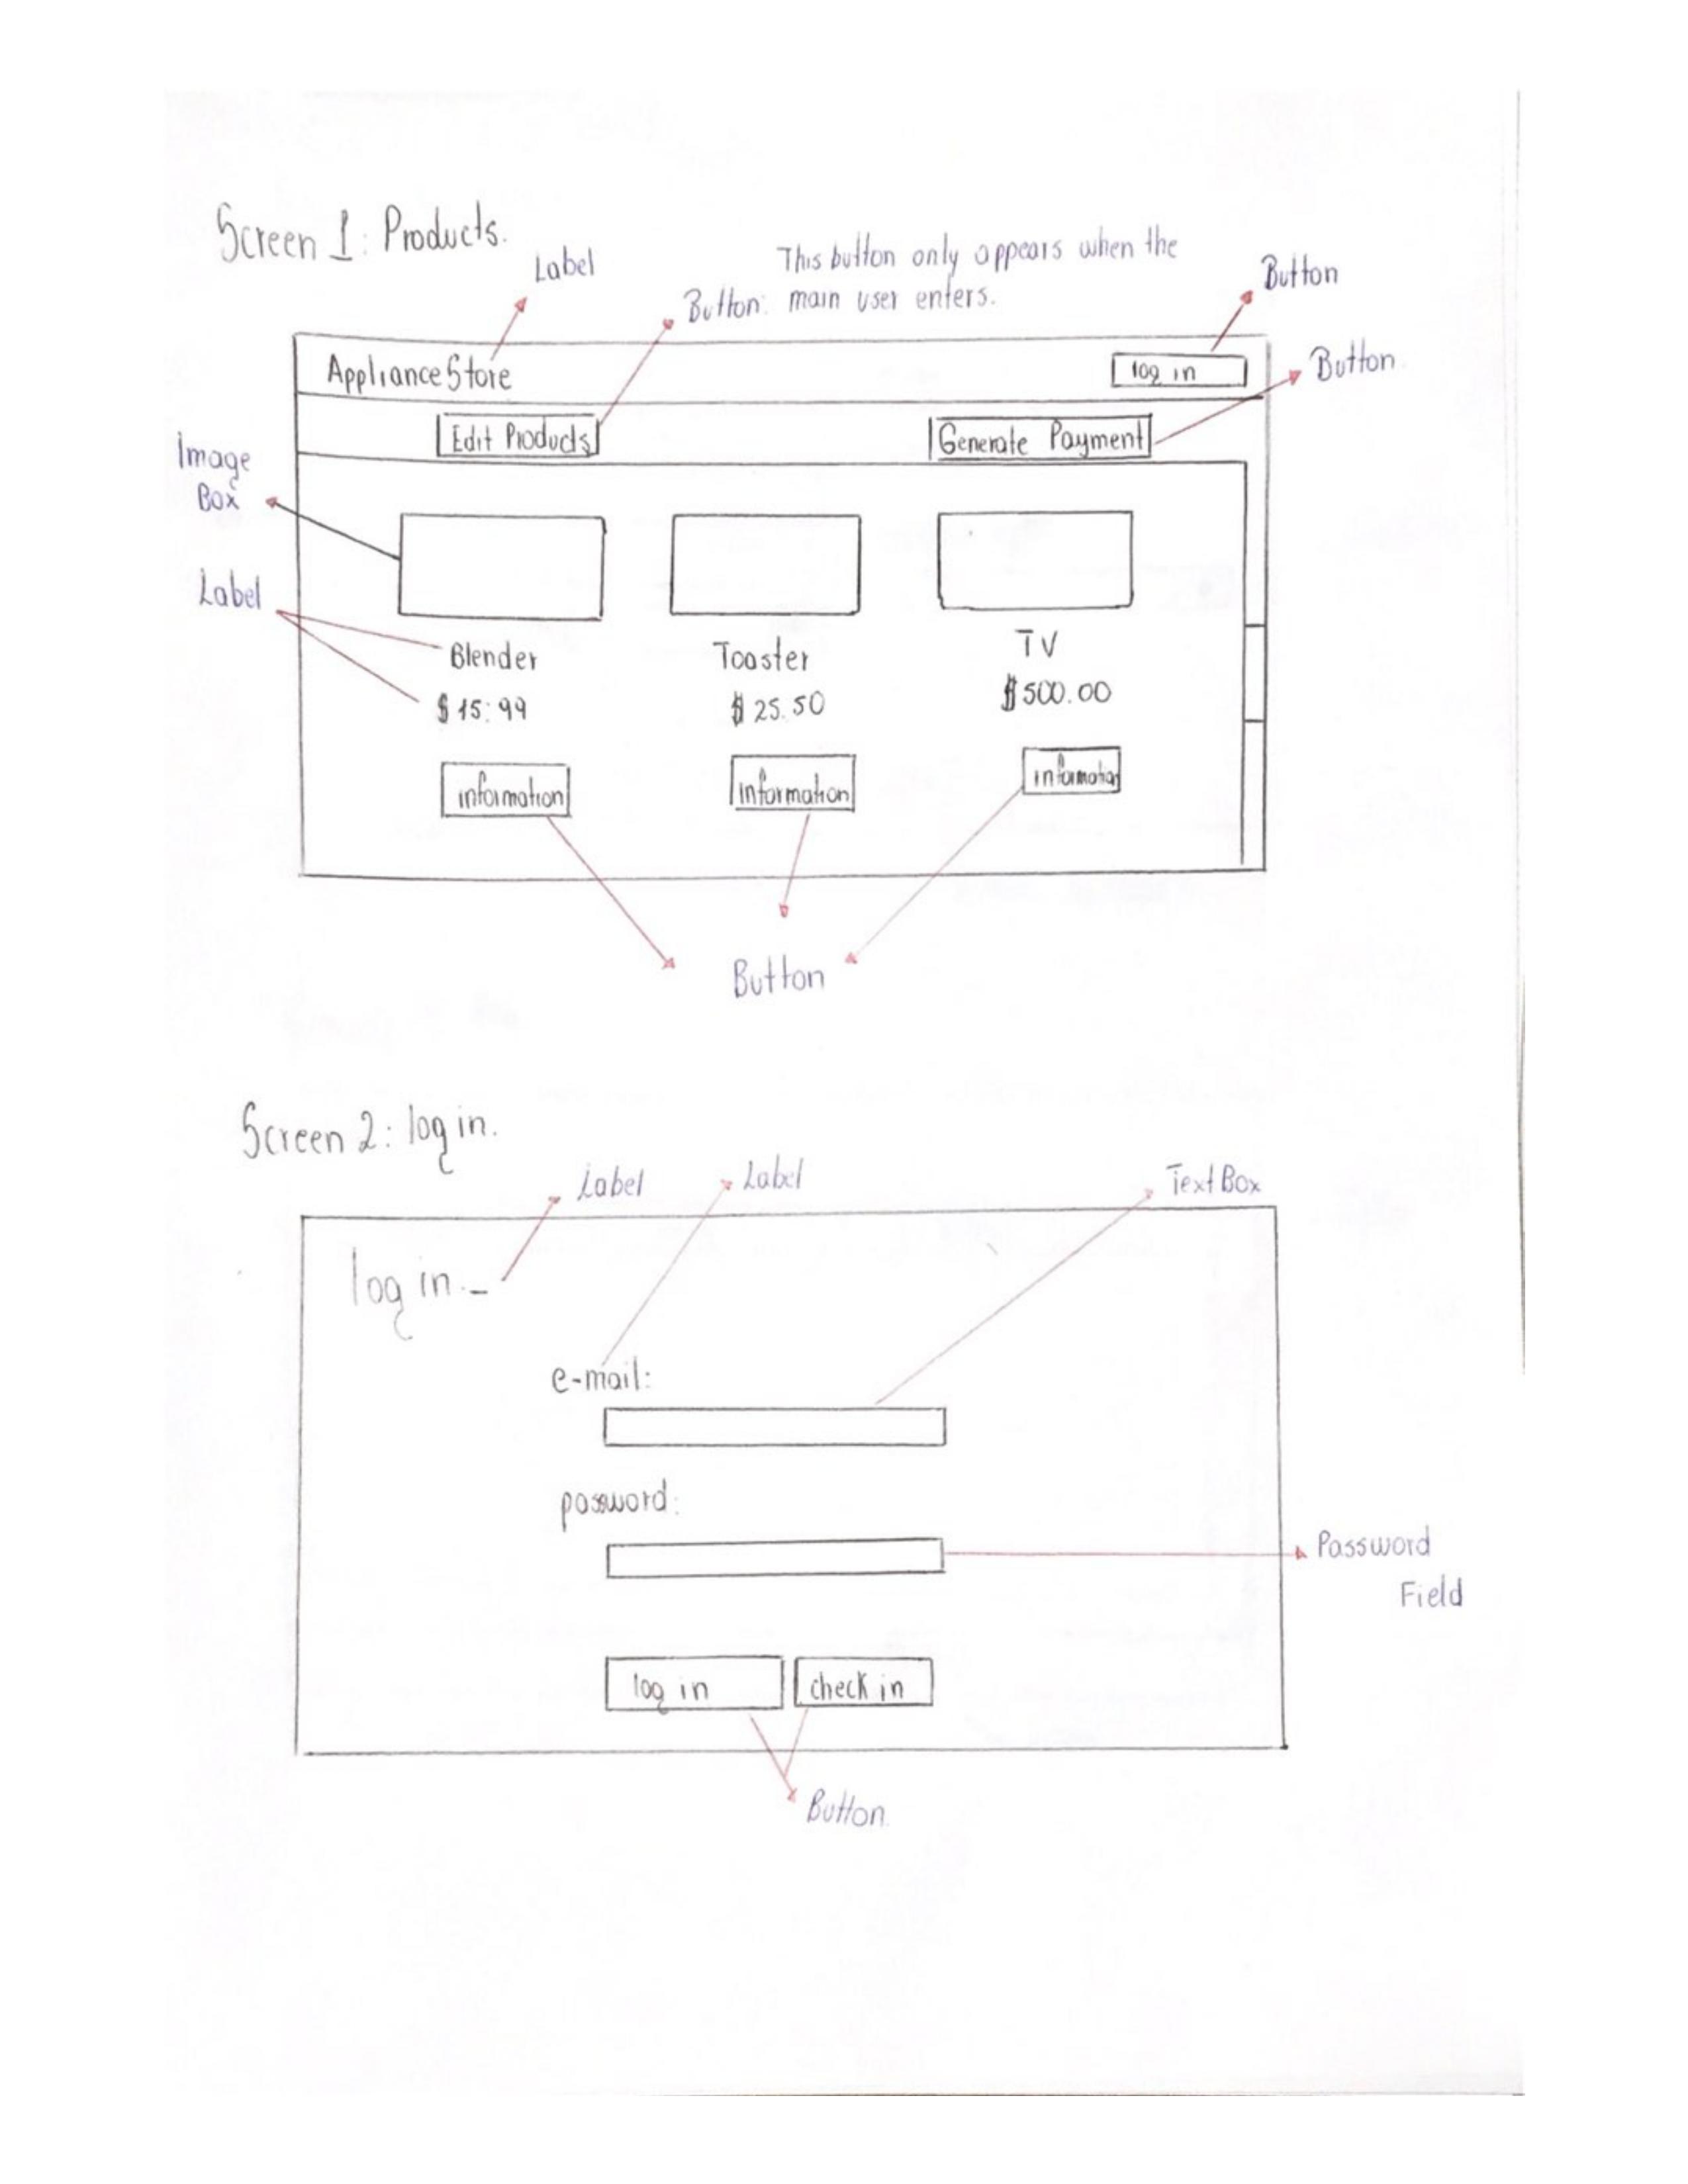 Screen 1: Products.
Label
This button only appears when the
Button: main user enters.
Button
Appliance Store
log in
Button.
Edit Products
Generate Payment
Image
Box
Label
Blender
Toaster
TV
$ 15:99
$ 25.50
$ 500.00
information
information
information
Button
Screen 2: log in.
Label
Label
Text Box
log in._
e-mail:
password:
Password
Field
log in
check in
Button.